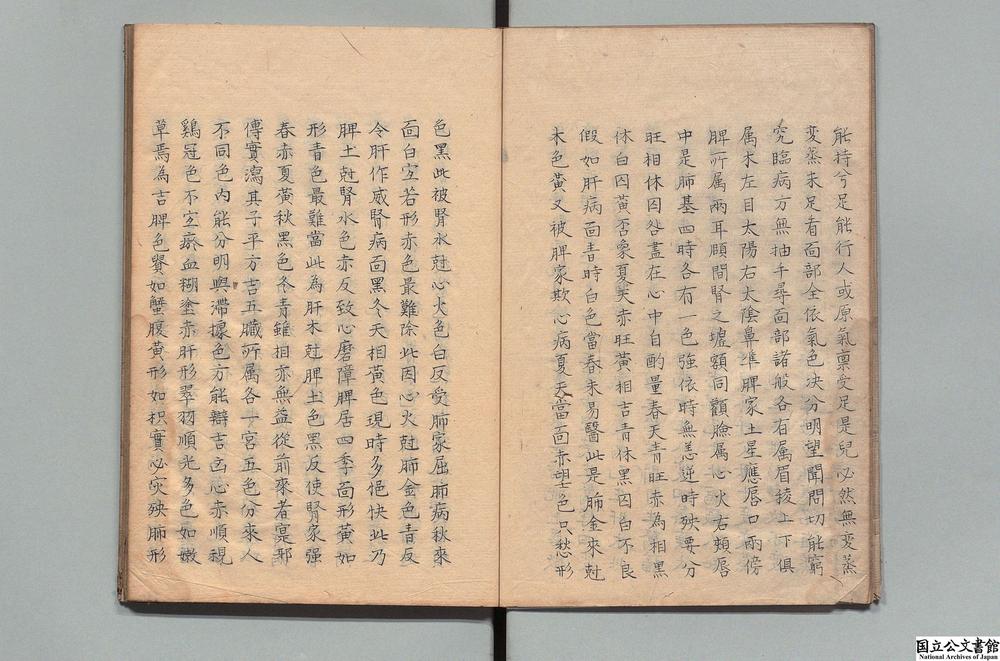 能持兮足能行人或原氣禀受足是兒必然無変蒸
变蒸未足看面部全依氣色决分明望聞問切能窮
究臨病方無抽千尋面部諸般各有属眉掕上下俱
属木左目太陽右太陰鼻準脾家土星應唇口兩傍
脾所属兩耳頥間腎之墟額同顴臉属心火右頰唇
中是肺基四時各有一色強依時無恙逆時殃要分
旺相休囚咎盡在心中自酌量春天青旺赤為相黒
休白囚黃否象夏天赤旺黃相吉青休黒囚白不良
假如肝病面青時白色當春未易醫此是肺金來尅
木色黃又被脾家欺心病夏天當面赤望色只愁形
色黑此被腎水尅心火色白反受肺家屈肺病秋來
面白宐若形赤色最難除此因心火尅肺金色青反
令肝作威腎病面黑冬天相黃色現時多悒怏此乃
脾土尅腎水色赤反致心磨障脾居四季面形黃如
形青色最難當此為肝木尅脾土色黑反使腎家强
春赤夏黃秋黑色冬青雖相亦無益從前來者寔邪
傳實瀉其子平方吉五臟所属各一宮五色分來人
不同色内能分明與滯據色方能辯吉凶心赤順視
鷄冠色不宐瘀血糊塗赤肝形翠羽順光多色如嫩
草焉為吉脾色黌如蟹腹黃形如枳實必灾殃肺形
国立公文書館
National Archives of Japan